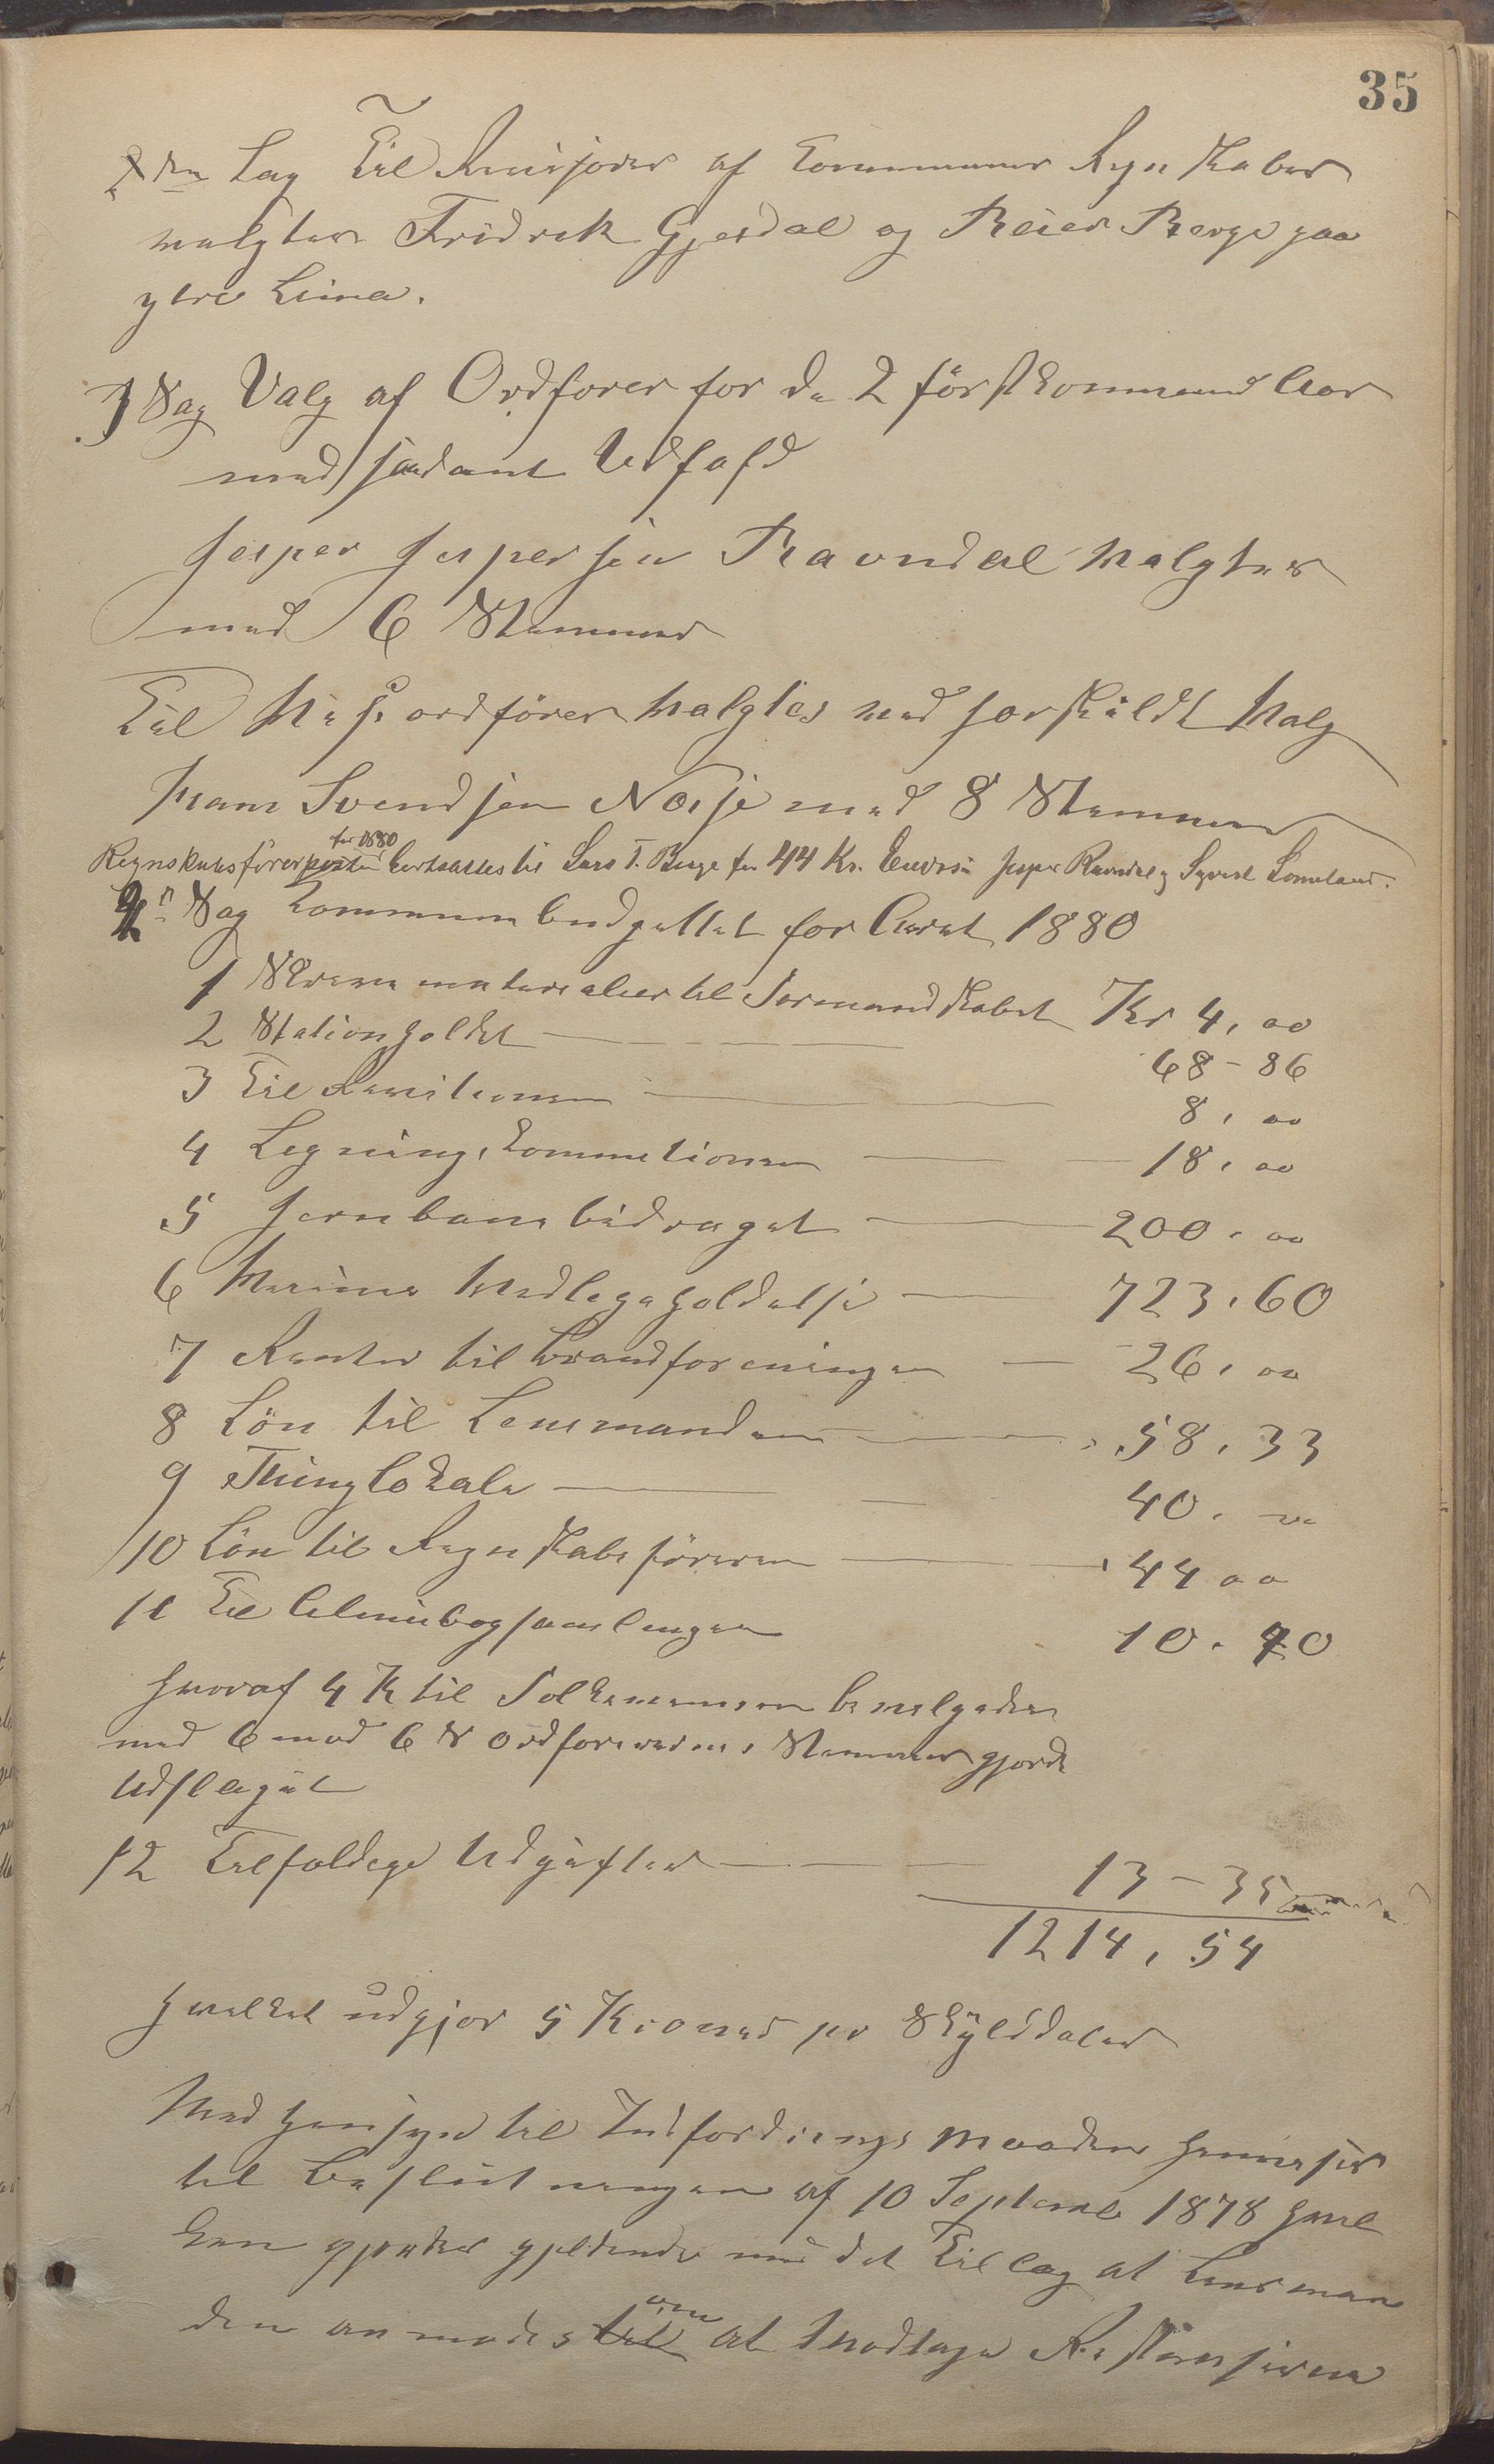 35
2den Sag Til Revisjorer af Communens Regnskaber
valgtes Fridrek Gjesdal og Reier Berge paa
ytre Lima.
3 Sag Valg af Ordfører for de 2 förstkommend Aar
med saadant Udfald
Jesper Jespersen Ravndal valgtes
med 6 Stemmer
Til Viseordförer valgtes ved særskildt Valg
Svendsen Noise med 8 Stemmer
for 1880
Regnskabsförerposten bortsattes til Lars T. Berge for 44 Kr. Jesper Ravndal og Syvert
4n Sag Kommunebudgettet for Aaret 1880
1 Skrivematerialier til Formandskabet Kr 4,00
2 Stationholdet 68-86
3 Til Revisionen 8,00
4 Legningskommetionen 18,00
5 Jernbanebidraget 200,00
6 Veienes Vedlegeholdelse 723,60
7 Renter til Brandforeningen 26,00
8 Lön til Lensmanden 58,33
9 Thinglokale 40,00
10 Lön til Regnskabsföreren 44 00
11 Til Almuebogsamlingen 10.40
hvoraf 4 K til Folkevennen bevilgedes
med 6 mod 6 & Ordførerens Stemmer gjorde
Udslaget
12 Tilfeldige Udgifter 13-35
1214,54
hvilket udgjør 5 Kroner pr Skylddaler
Med Hensyn til Indfordrings Maaden henvises
til Beslutningen af 10 Septemb 1878 hvil
ken gjøres gjeldende med det Tillæg at Lensman
den anmodes til om at modtage Restansерne